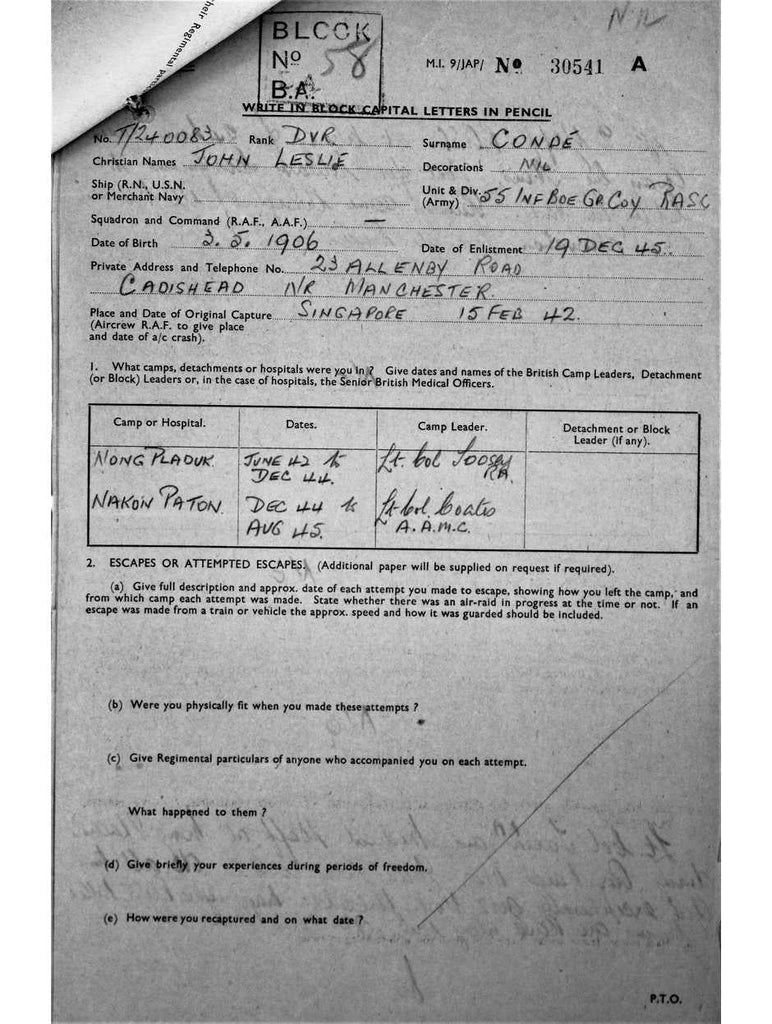 heir Regimental partic
BLOCK
No 58
B.A.
Nil
M.I. 9/JAP/ No 30541 A
WRITE IN BLOCK CAPITAL LETTERS IN PENCIL
No. T/240083 Rank DVR Surname CONDÉ
Christian Names JOHN LESLIE Decorations NIL
Ship (R.N., U.S.N. or Merchant Navy
Unit & Div. (Army) 55 INF BDE GP. COY RASC
Squadron and Command (R.A.F., A.A.F.) —
Date of Birth 3.5.1906 Date of Enlistment 19 DEC 45.
Private Address and Telephone No. 23 ALLENBY ROAD
CADISHEAD NR MANCHESTER.
Place and Date of Original Capture SINGAPORE 15 FEB 42.
(Aircrew R.A.F. to give place
and date of a/c crash).
1. What camps, detachments or hospitals were you in? Give dates and names of the British Camp Leaders, Detachment
(or Block) Leaders or, in the case of hospitals, the Senior British Medical Officers.
Camp or Hospital. Dates. Camp Leader. Detachment or Block
Leader (if any).
NONG PLADUK. JUNE 42 to Lt. Col Toosey
DEC 44. RA.
NAKON PATON. DEC 44 to Lt. Col. Coates
AUG 45. A.A.M.C.
2. ESCAPES OR ATTEMPTED ESCAPES. (Additional paper will be supplied on request if required).
(a) Give full description and approx. date of each attempt you made to escape, showing how you left the camp, and
from which camp each attempt was made. State whether there was an air-raid in progress at the time or not. If an
escape was made from a train or vehicle the approx. speed and how it was guarded should be included.
(b) Were you physically fit when you made these attempts ?
(c) Give Regimental particulars of anyone who accompanied you on each attempt.
What happened to them ?
(d) Give briefly your experiences during periods of freedom.
(e) How were you recaptured and on what date ?
P.T.O.